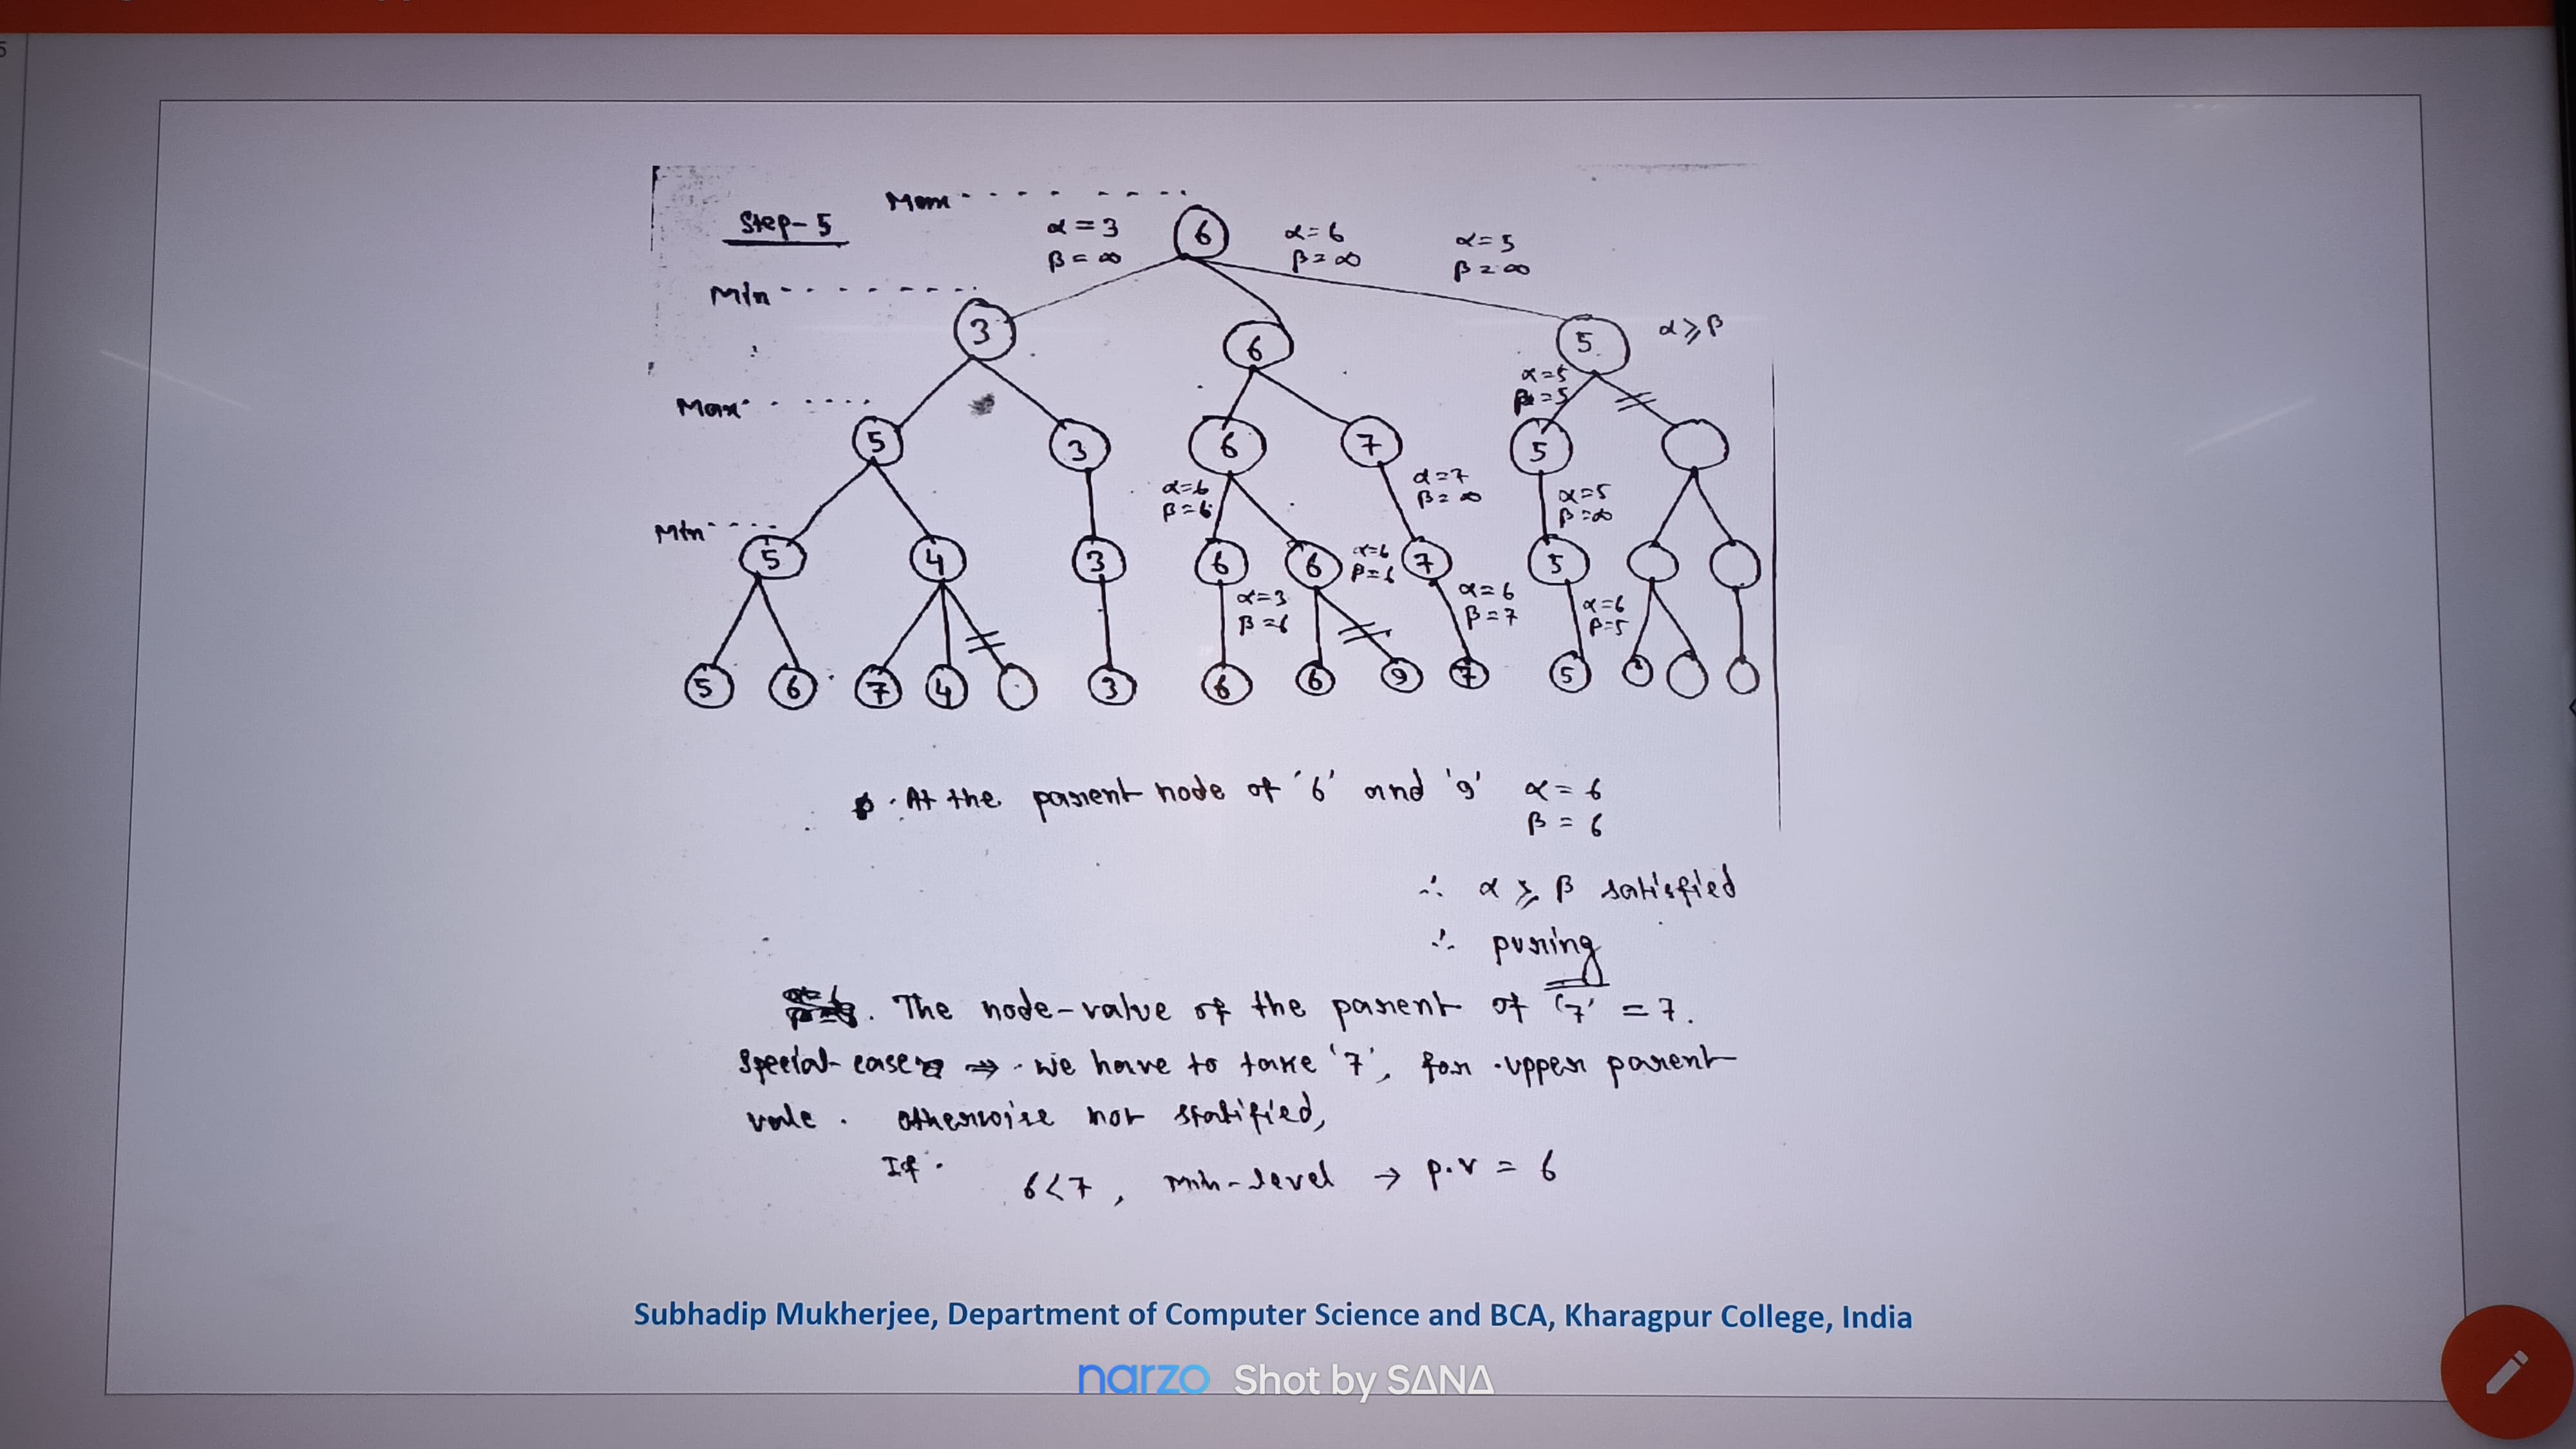 5
Max
Step-5
α = 3
β = ∞
6
α = 6
β = ∞
α = 5
β = ∞
Min
3
6
5
α ≥ β
Max
α = 5
β = 5
5
3
6
7
5
α = 6
β = 6
α = 7
β = ∞
α = 5
β = ∞
Min
5
4
3
6
6
α = 6
β = 6
7
5
α = 3
β = 6
α = 6
β = 7
α = 6
β = 5
5
6
7
4
3
6
6
9
7
5
At the parent node of '6' and '9' α = 6
β = 6
∴ α ≥ β satisfied
∴ puring
The node-value of the parent of '7' = 7.
Special case ⇒ we have to take '7', for upper parent
vale. otherwise not statified,
If
6<7, min-level → p.v = 6
Subhadip Mukherjee, Department of Computer Science and BCA, Kharagpur College, India
narzo Shot by SANA